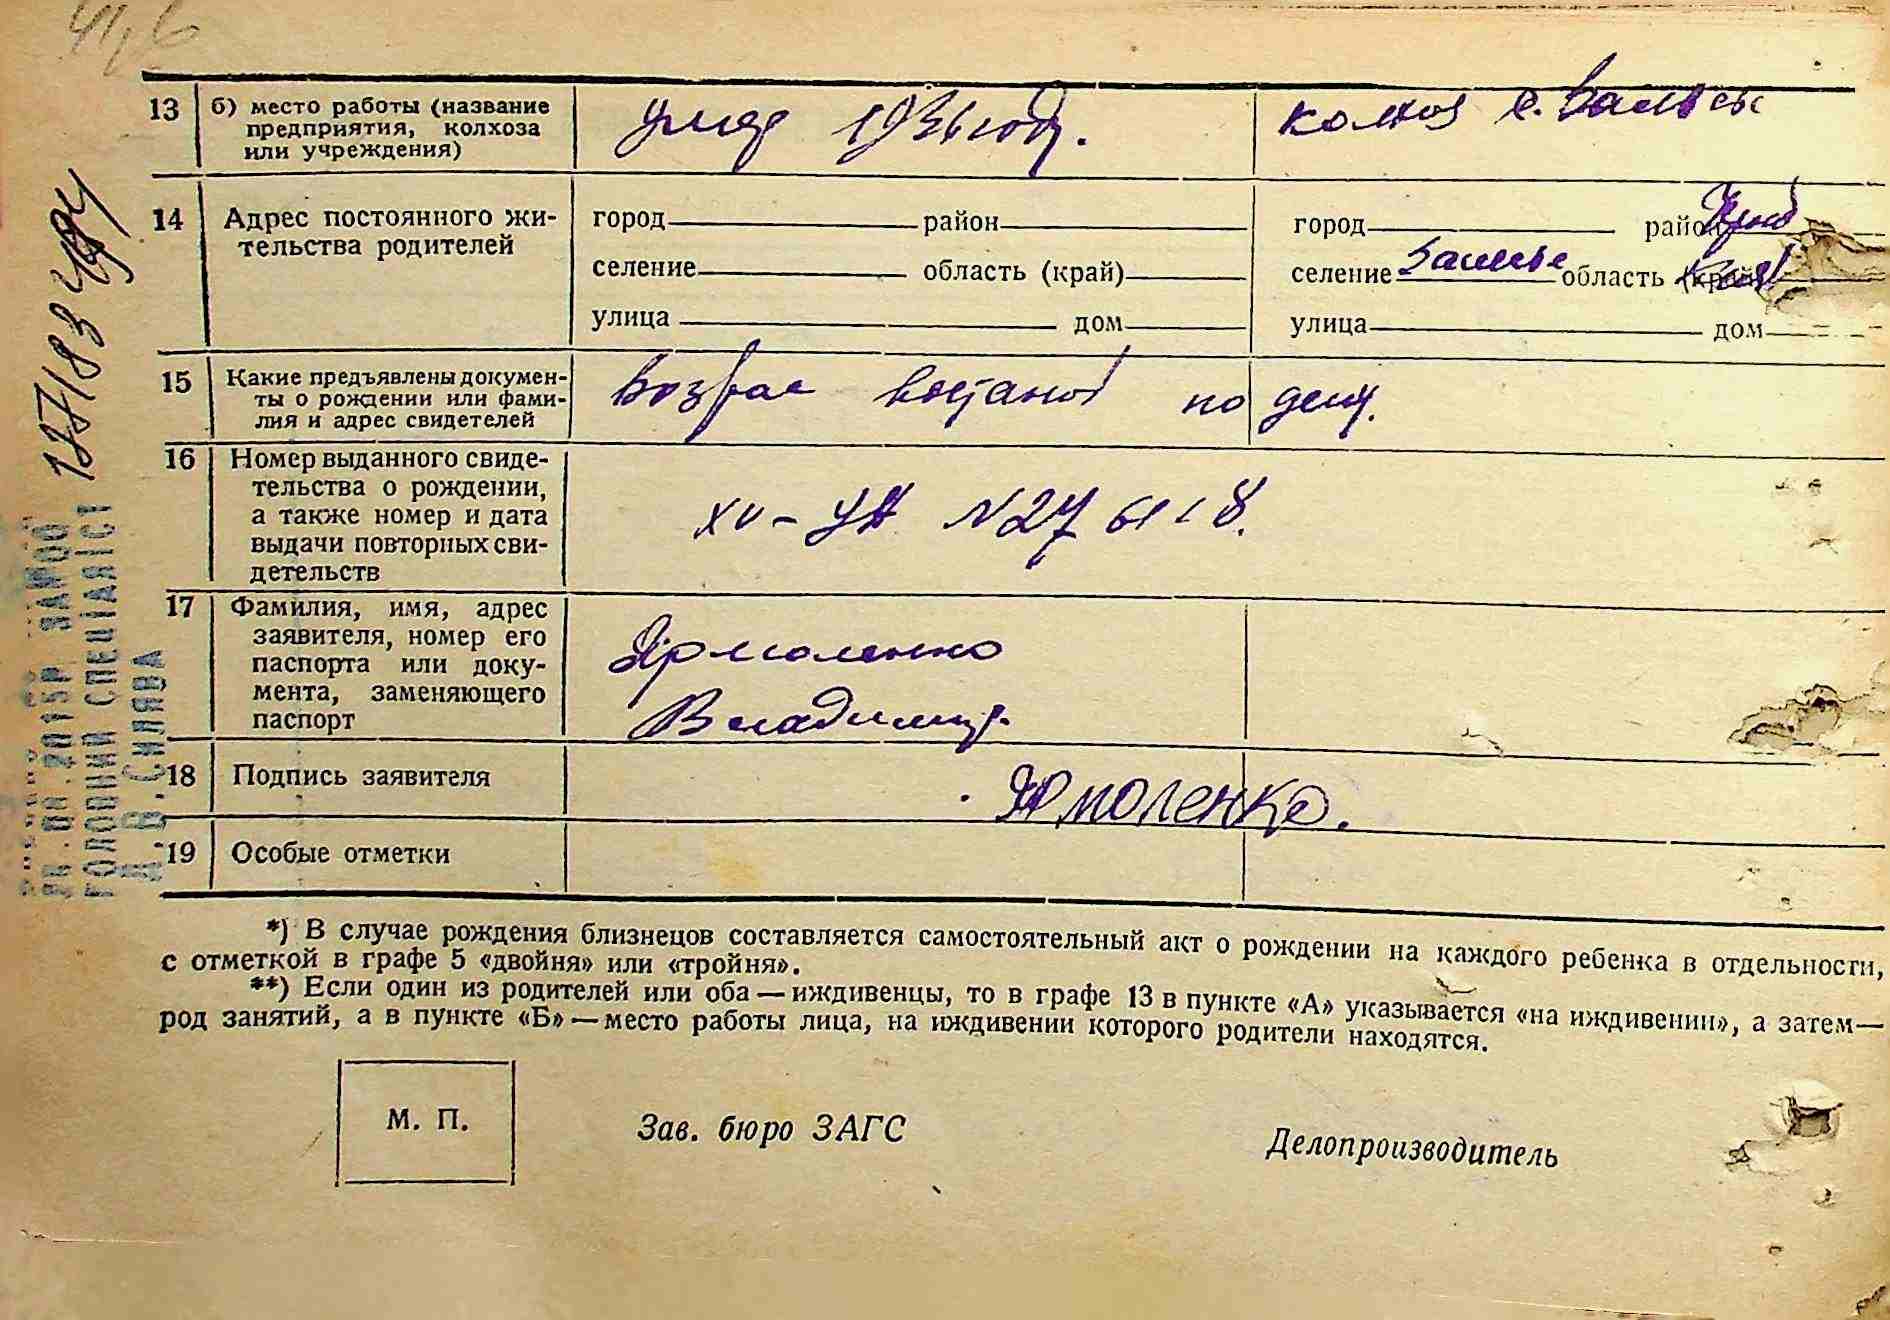 13 б) место работы (название предприятия, колхоза или учреждения) умер 1936 году. колхоз с.
14 Адрес постоянного жительства родителей
город район город район
селение область (край) селение область (край)
улица дом улица дом
15 Какие предъявлены докумен-
ты о рождении или фами-
лия и адрес свидетелей
Возрас по делу.
16 Номер выданного свиде-
тельства о рождении,
а также номер и дата
выдачи повторных сви-
детельств
17 Фамилия, имя, адрес
заявителя, номер его
паспорта или доку-
мента, заменяющего
паспорт
Ярмоленко
Владимир.
18 Подпись заявителя
19 Особые отметки
ГОЛОВНИЙ СПЕЦІАЛІСТ
*) В случае рождения близнецов составляется самостоятельный акт о рождении на каждого ребенка в отдельности,
с отметкой в графе 5 «двойня» или «тройня».
**) Если один из родителей или оба — иждивенцы, то в графе 13 в пункте «А» указывается «на иждивении», а затем—
род занятий, а в пункте «Б» — место работы лица, на иждивении которого родители находятся.
М. П.
Зав. бюро ЗАГС
Делопроизводитель